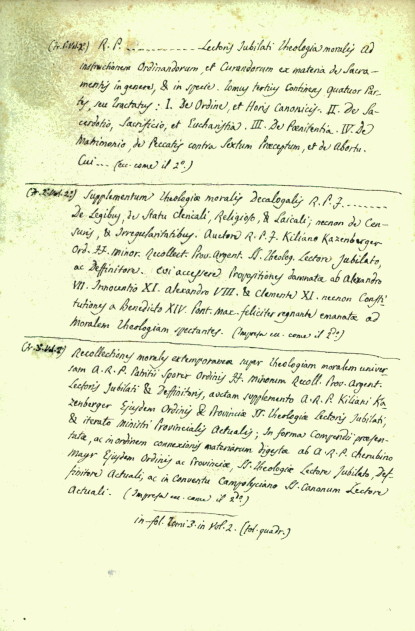 R. P. ............ Lectoris Jubilati Theologia moralis ad
instructionem Ordinandorum, et Curandorum ex materia de Sacra-
mentis in genere, & in specie. Tomus tertius Continens Quatuor Par-
tes, seu Tractatus: I. De Ordine, et Horis Canonicis. II. De Sa-
cerdotio, Sacrificio, et Eucharistia. III. De Pœnitentia. IV. De
Matrimonio, de Peccatis contra Sextum Præceptum, et de Abortu.
Cui ... (ec. come il 2.º)
Supplementum Theologiæ moralis Decalogalis R. P. F. ........
De Legibus, de Statu Clericali, Religioso, & Laicali; necnon de Cen-
suris, & Irregularitatibus. Auctore R. P. F. Kiliano Kazenberger
Ord. FF. minor. Recollect. Prov. Argent. SS. Theolog. Lectore Jubilato,
ac Deffinitore. Cui accessere Propositiones damnatæ ab Alexandro
VII. Innocentio XI. Alexandro VIII. & Clemente XI. necnon Consti-
tutiones a Benedicto XIV. Pont. max. feliciter regnante emanatæ ad
Moralem Theologiam spectantes. (Impresa ec. come il 2.º)
Recollectiones morales extemporaneæ super Theologiam moralem univer-
sam A. R. P. Patritii Sporer Ordinis FF. minorum Recoll. Prov. Argent.
Lectoris Jubilati & Deffinitoris, auctam supplemento A. R. P. Kiliani Ka-
zenberger Ejusdem Ordinis & Provinciæ SS. Theologiæ Lectoris Jubilati,
& iterato Ministri Provincialis Actualis; In forma Compendii præsen-
tatæ, ac in ordinem connexionis materiarum digestæ ab A. R. P. cherubino
Mayr Ejusdem Ordinis ac Provinciæ, SS. Theologiæ Lectore Jubilato, Def-
finitore Actuali, ac in Conventu Campolyciano SS. Canonum Lectore
Actuali. (Impresa ec. come il 2.º)
in-fol. Tomi 3. in Vol. 2. (fol. quadr.)